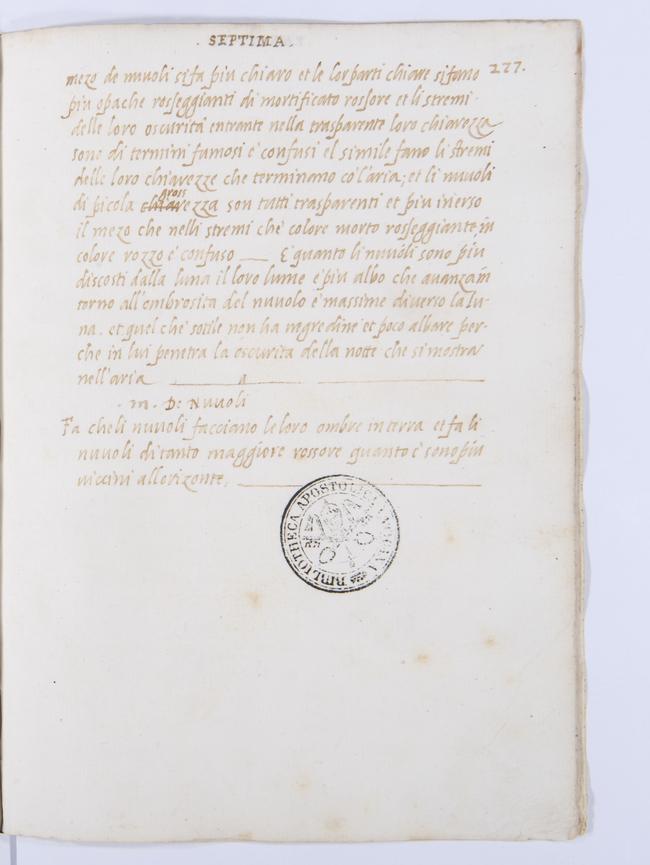 SEPTIMA.
277.
mezo de nuvoli si fa piu chiaro et le lor parti chiare si fano
piu opache rosseggianti di mortificato rossore et li stremi
delle loro oscurità entrante nella trasparente loro chiarezza
sono di termini fumosi e confusi el simile fano li stremi
delle loro chiarezze che terminano co l'aria; et li nuvoli
gross
di picola chiarezza son tutti trasparenti et piu inverso
il mezo che nelli stremi ch'è colore morto rosseggiante, in
colore rozzo e confuso ___ E quanto li nuvoli sono piu
discosti dalla luna il loro lume e piu albo che avanza in
torno all'ombrosita del nuvolo e massime di verso la lu-
na. et quel che sotile non ha negredine et poco albare per-
che in lui penetra la oscurita della notte che si mostra
nell'aria
m. D: Nuvoli
Fa che li nuvoli facciano le loro ombre in terra et fa li
nuvoli di tanto maggiore rossore quanto e sono piu
viccini all orizonte,
BIBLIOTHECA APOSTOLICA VATICANA